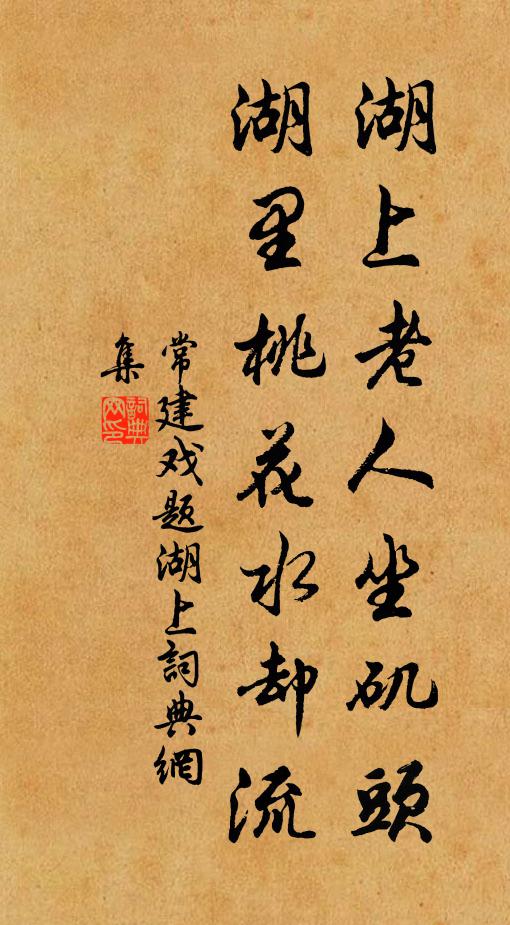 湖上老人坐矶頭
湖里桃花水却流
常建戏题湖上詞典網
集
詞典网印